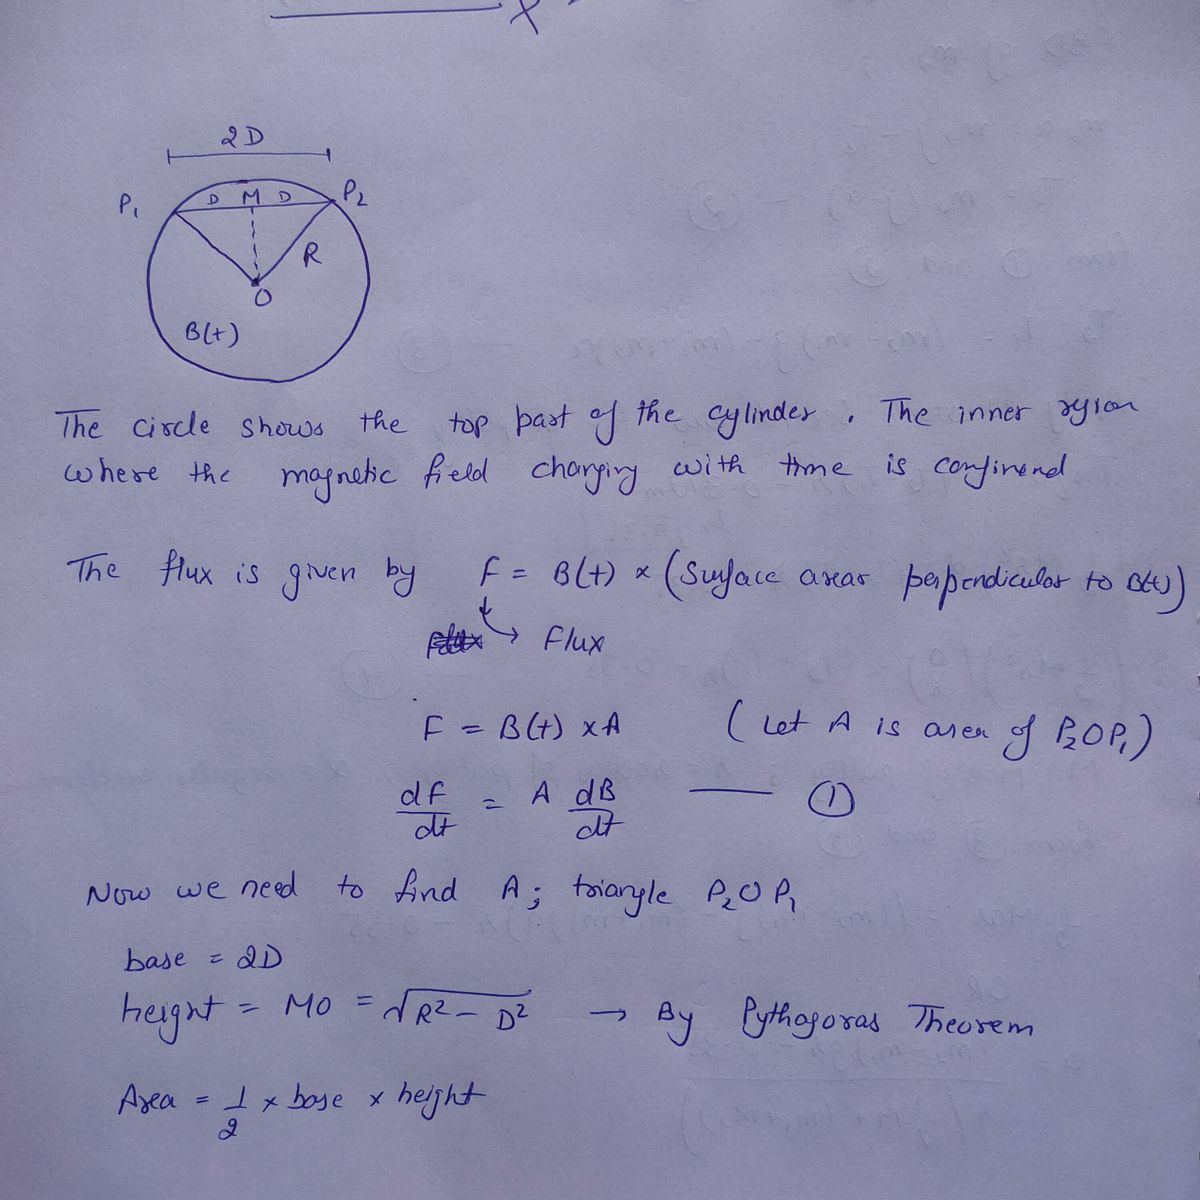 2D
P₁ D M D P₂
R
O
B(t)
The circle shows the top part of the cylinder. The inner region
where the magnetic field changing with time is confinend
The flux is given by F = B(t) × (Surface area perpendicular to B(t))
Flux
F = B(t) × A (Let A is area of P₂OP₁)
dF/dt = A dB/dt —— ①
Now we need to find A; triangle P₂OP₁
base = 2D
height = MO = √R² - D² → By Pythagoras Theorem
Area = 1/2 × base × height